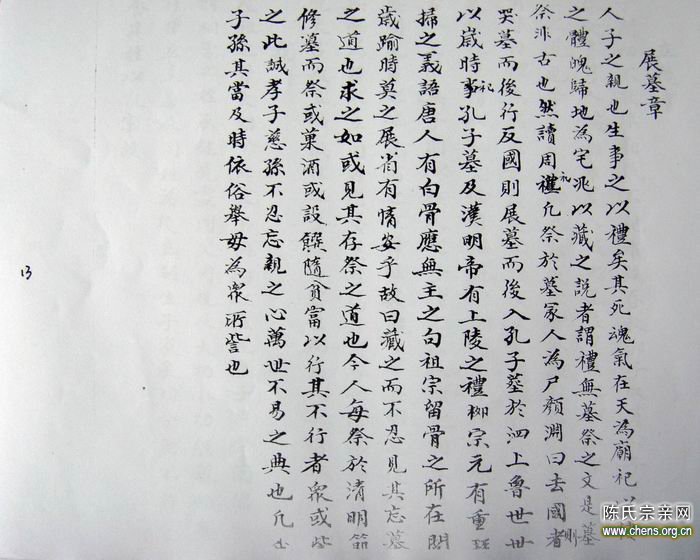 展墓章
人子之親也生事之以禮矣其死魂氣在天為廟祀以
之體魄歸地為宅兆以藏之説者謂禮無墓祭之文是墓
祭非古也然讀周禮凡祭於墓冢人為尸顏淵曰去國者則
哭墓而後行反國則展墓而後入孔子墓於泗上魯世世
以歲時祀事孔子墓及漢明帝有上陵之禮柳宗元有重
掃之義語唐人有白骨應無主之句祖宗留骨之所在
歲踰時莫之展省有情安乎故曰藏之而不忍見其忘墓
之道也求之如或見其存祭之道也今人每祭於清明節
修墓而祭或菓酒或設饌隨貧富以行其不行者眾或
之此誠孝子慈孫不忍忘親之心萬世不易之典也凡
子孫其當及時依俗舉毋為眾所訾也
13
陈氏宗亲网
www.chens.org.cn